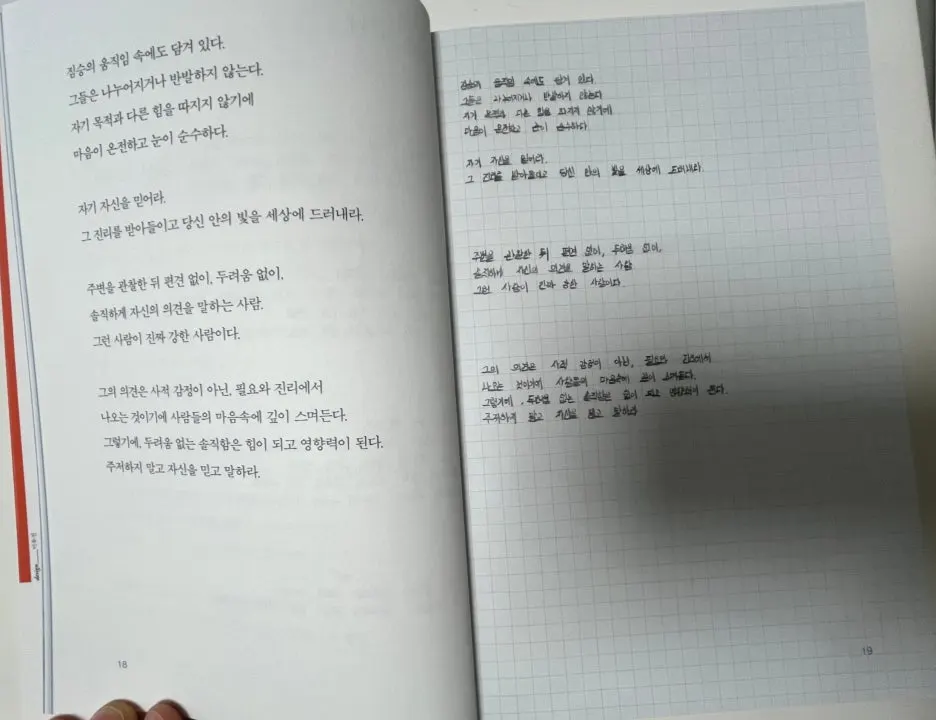 짐승의 움직임 속에도 담겨 있다.
그들은 나누어지거나 반발하지 않는다.
자기 목적과 다른 힘을 따지지 않기에
마음이 온전하고 눈이 순수하다.
자기 자신을 믿어라.
그 진리를 받아들이고 당신 안의 빛을 세상에 드러내라.
주변을 관찰한 뒤 편견 없이, 두려움 없이,
솔직하게 자신의 의견을 말하는 사람.
그런 사람이 진짜 강한 사람이다.
그의 의견은 사적 감정이 아닌, 필요와 진리에서
나오는 것이기에 사람들의 마음속에 깊이 스며든다.
그렇기에, 두려움 없는 솔직함은 힘이 되고 영향력이 된다.
주저하지 말고 자신을 믿고 말하라.
18
짐승의 움직임 속에도 담겨 있다.
그들은 나누어지거나 반발하지 않는다
자기 목적과 다른 힘을 따지지 않기에
마음이 온전하고 눈이 순수하다
자기 자신을 믿어라.
그 진리를 받아들이고 당신 안의 빛을 세상에 드러내라.
주변을 관찰한 뒤 편견 없이, 두려움 없이,
솔직하게 자신의 의견을 말하는 사람
그런 사람이 진짜 강한 사람이다
그의 의견은 사적 감정이 아닌, 필요와 진리에서
나오는 것이기에 사람들의 마음속에 깊이 스며든다.
그렇기에, 두려움 없는 솔직함은 힘이 되고 영향력이 된다.
주저하지 말고 자신을 믿고 말하라
19